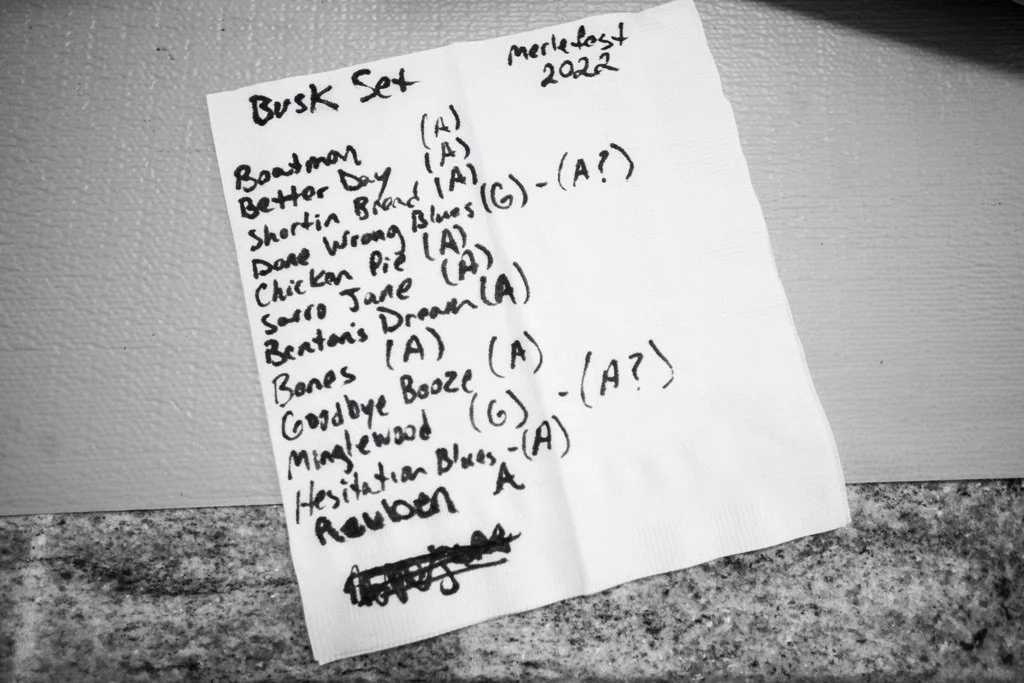 Busk Set
Merlefest
2022
Boatman (A)
Better Day (A)
Shortin Bread (A)
Done Wrong Blues (G) - (A?)
Chicken Pie (A)
Sarro Jane (A)
Benton's Dream (A)
Bones (A)
Goodbye Booze (A)
Minglewood (G) - (A?)
Hesitation Blues - (A)
Reuben A